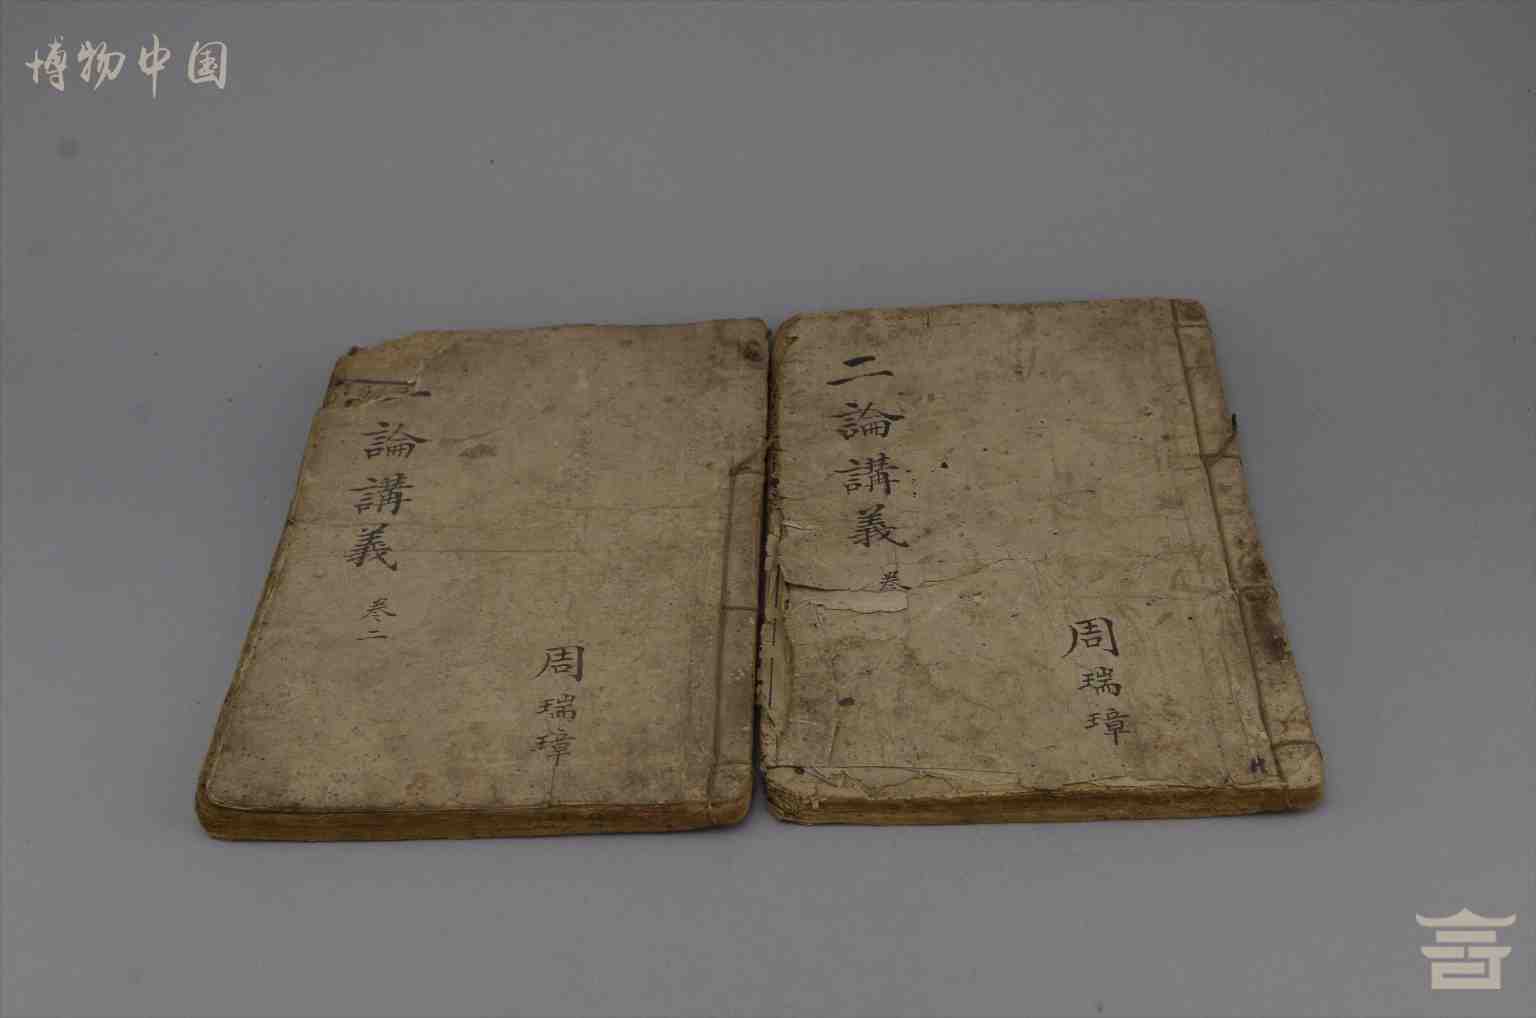 博物中国
二論講義
卷
周瑞璋
論講義
卷二
周瑞璋